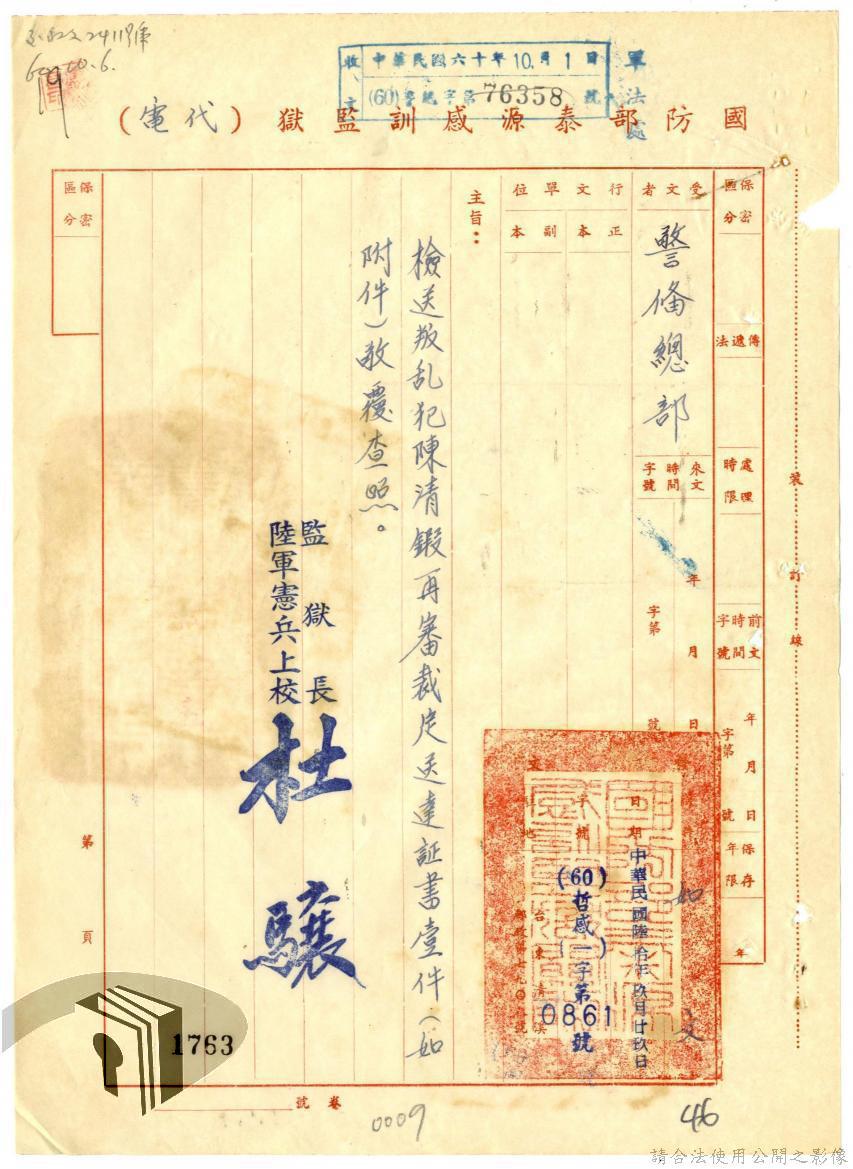 60.10.6.
收文
中華民國六十年10月1日
(60)警總字第76358號
軍法處
國防部泰源感訓監獄（代電）
保密區分
傳遞法
處理時限
前文時間字號
年 月 日
字第 號
保存年限
年
受文者
警備總部
來文時間字號
年 月 日
字第 號
行文單位
正本
副本
主旨：
檢送叛乱犯陳清鍛再審裁定送達証書壹件（如
附件）敬覆查照。
監獄長
陸軍憲兵上校
杜驤
日期
中華民國陸拾年玖月廿玖日
字號
(60)哲感(一)字第0861號
如文
保密區分
第 頁
裝訂線
1763
卷號
0009
46
請合法使用公開之影像